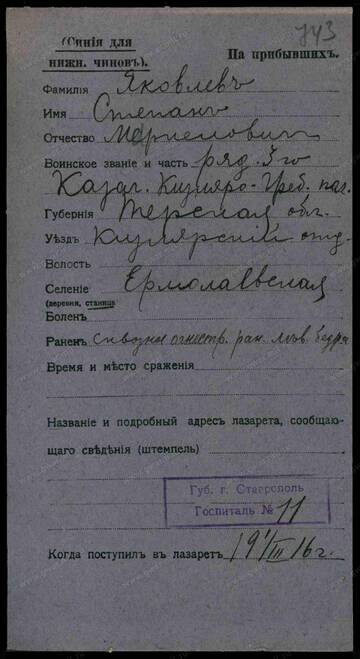 743
(Синія для
нижн. чиновъ).
На прибывшихъ.
Фамилия Яковлевъ
Имя Степанъ
Отчество
Воинское званіе и часть ряд. 3го
Казач. Кизляро-Греб. пол.
Губернія Терская обл.
Уѣздъ Кизлярскій отд.
Волость
Селеніе Ермолаевская
(деревня, станица
Боленъ
Раненъ сквозн. огнестр. ран. лѣв. бедра
Время и мѣсто сраженія
Названіе и подробный адресъ лазарета, сообщаю-
щаго свѣдѣнія (штемпель)
Губ. г. Ставрополь
Госпиталь № 11
Когда поступилъ въ лазаретъ 19 1/III 16 г.